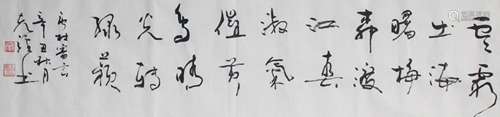 雲霞
出海
曙梅
柳渡
江春
淑氣
催黄
鸟晴
光轉
绿蘋
杜審言
辛丑秋月